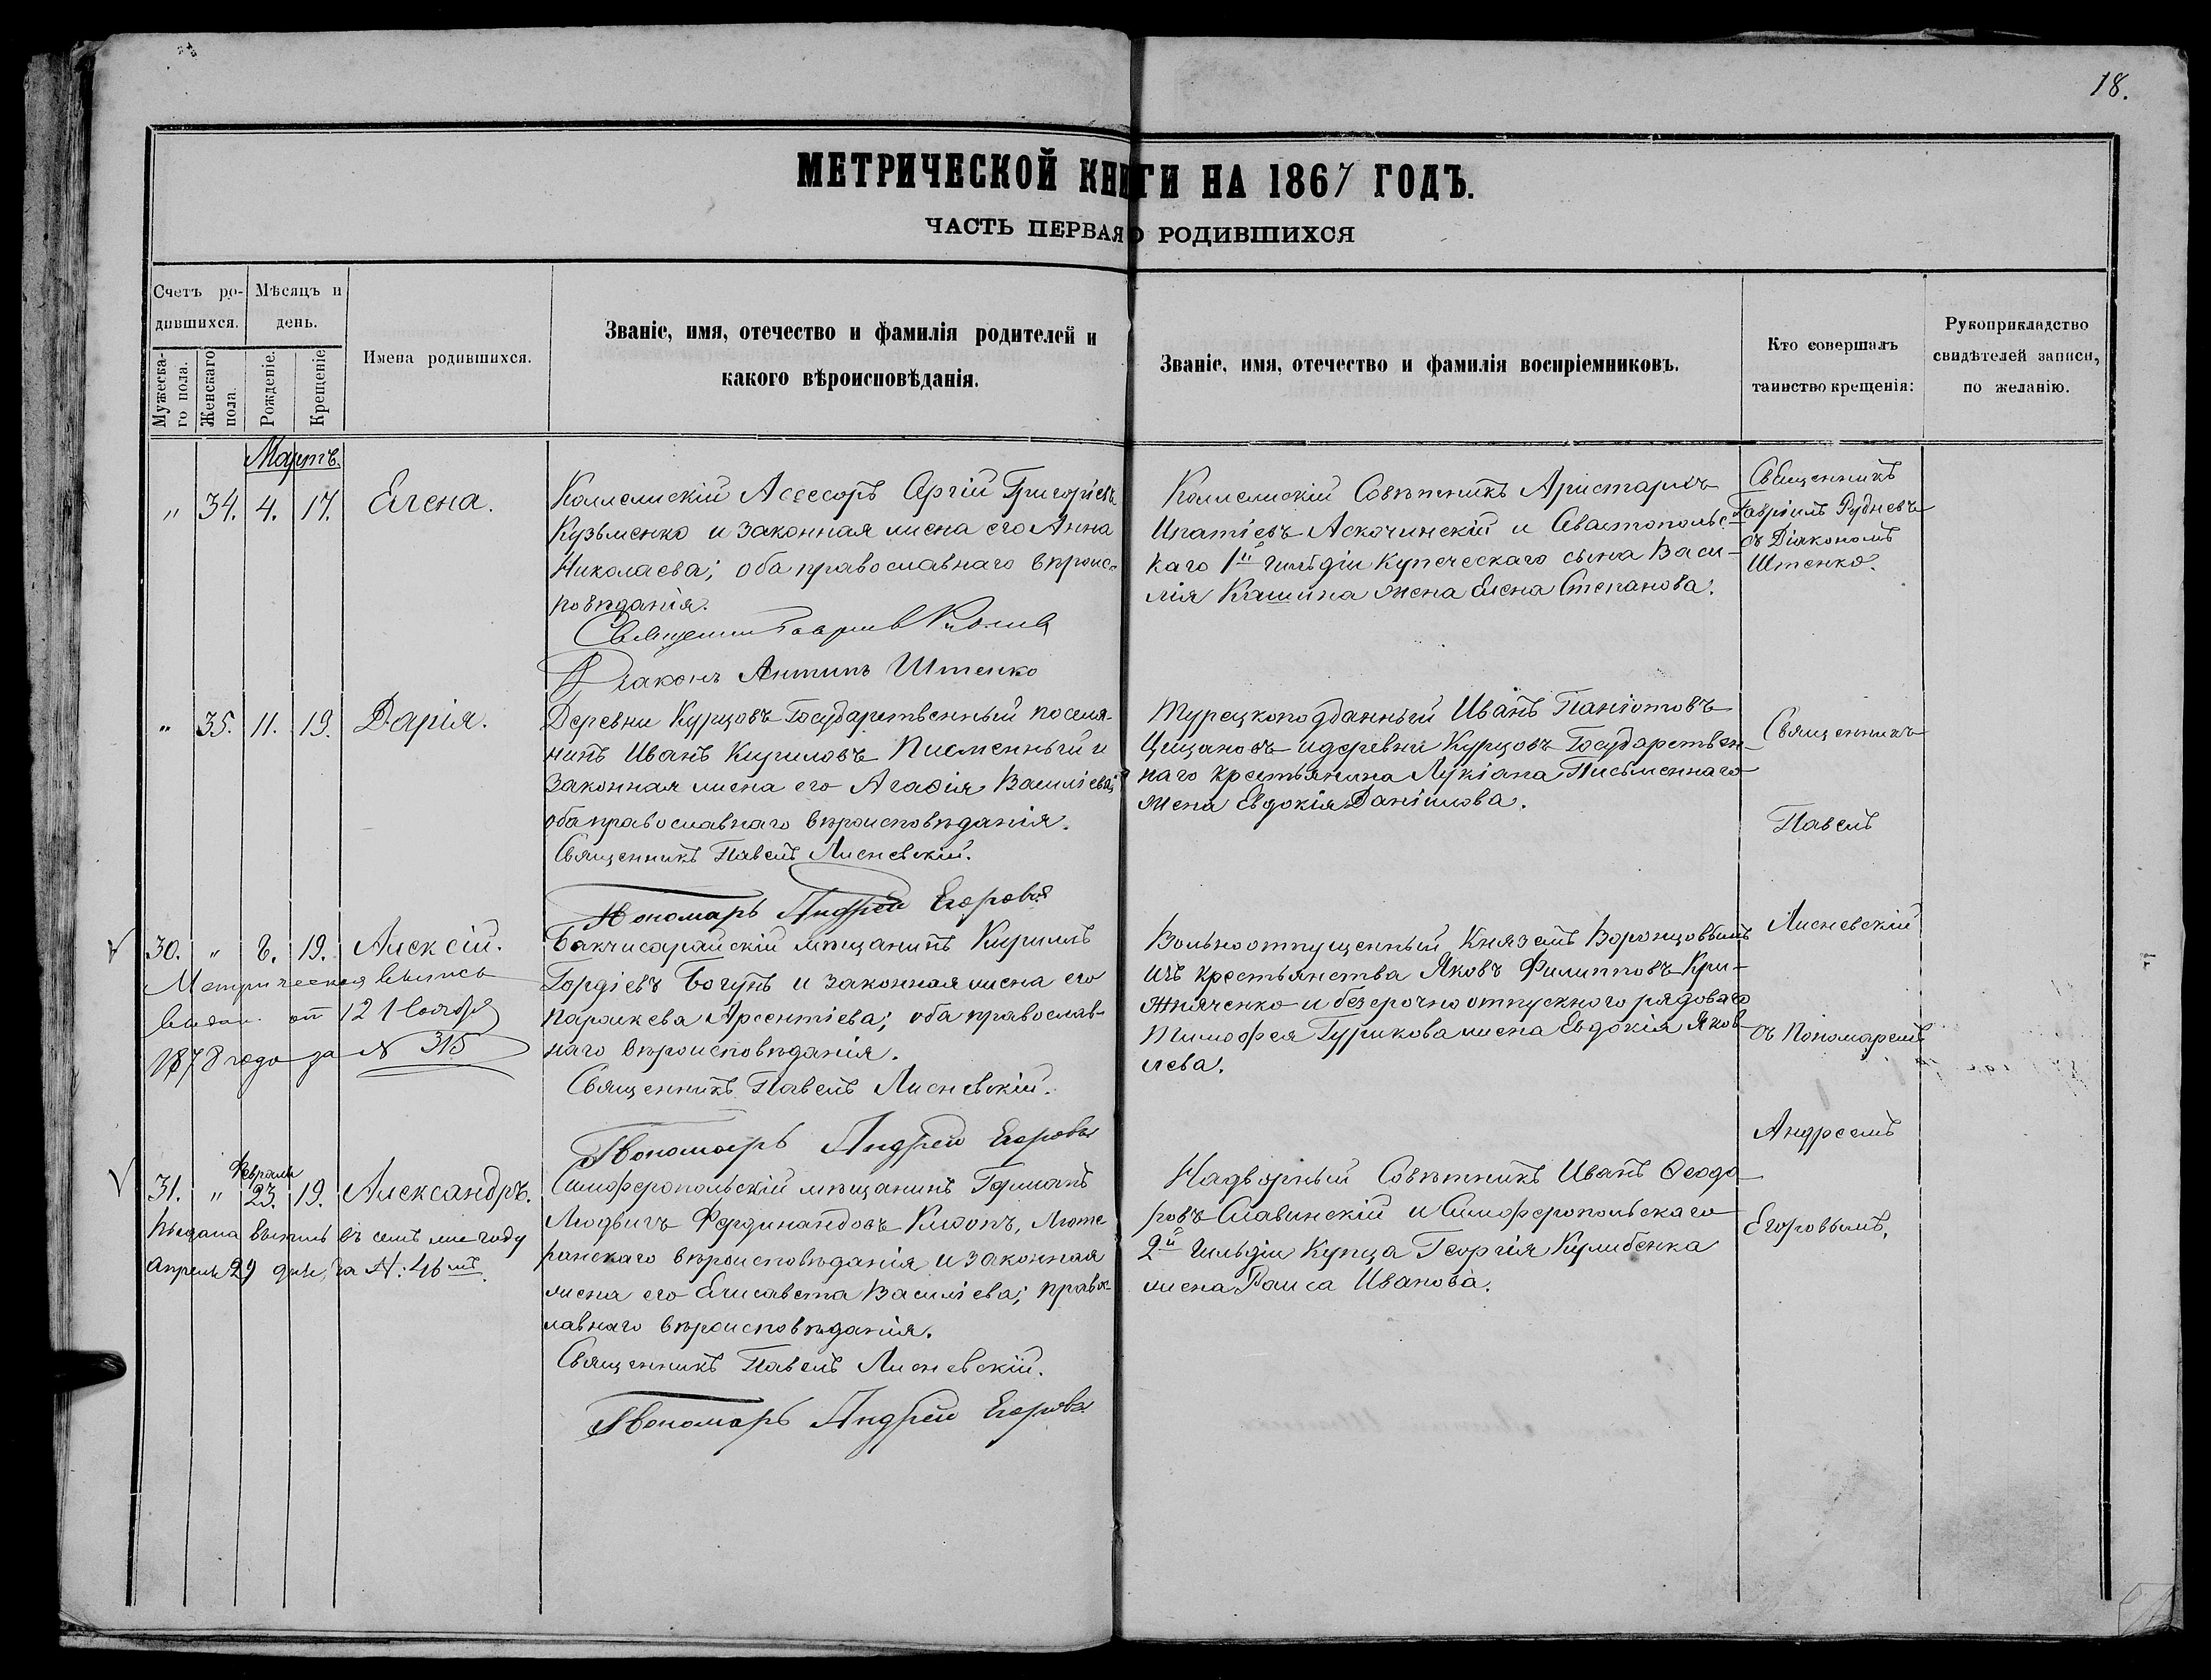 18.
МЕТРИЧЕСКОЙ КНИГИ НА 1867 ГОДЪ.
ЧАСТЬ ПЕРВАЯ О РОДИВШИХСЯ
Счетъ ро-
дившихся.
Мужеска-
го пола.
Женскаго
пола.
Мѣсяцъ и
день.
Рожденіе.
Крещеніе
Имена родившихся.
Званіе, имя, отечество и фамилія родителей и
какого вѣроисповѣданія.
Званіе, имя, отечество и фамилія воспріемниковъ.
Кто совершалъ
таинство крещенія:
Рукоприкладство
свидѣтелей записи,
по желанію.
Мартъ.
" 34. 4. 17. Елена.
Коллежскій Асессоръ Сергій Григоріевъ
Кузьменко и законная жена его Анна
Николаева; оба православнаго вѣроис-
повѣданія.
Священник Гавріил
Діаконъ Антипъ Штенко
Коллежскій Совѣтникъ Аристархъ
Ипатіевъ Аскочинскій и Севастопольс-
каго 1й гильдіи Купеческаго сына Васи-
лія Кашина жена Елена Степанова.
Священникъ
Гавріилъ Рудневъ
съ Діакономъ
Штенко.
" 35. 11. 19. Дарія.
Деревни Курцовъ Государственный поселя-
нинъ Иванъ Кириловъ Писменный и
законная жена его Агафія Василіева;
оба православнаго вѣроисповѣданія.
Священникъ Павелъ Лисневскій.
Пономарь Андрей Егоровъ
Турецкоподданный Иванъ Паніотовъ
и деревни Курцовъ Государствен-
наго крестьянина Лукіана Письменнаго
жена Евдокія Даніилова.
Священникъ
Павелъ
Лисневскій
съ Пономаремъ
Андреемъ
Егоровымъ.
30. " 8. 19. Алексій.
Метрическая выпись
выдан. от 12 Ноября
1878 года за № 315
Бакчисарайскій мѣщанинъ Кириллъ
Гордіевъ Богунъ и законная жена его
Параскева Арсентіева; оба православ-
наго вѣроисповѣданія.
Священникъ Павелъ Лисневскій.
Пономарь Андрей Егоровъ
Вольноотпущенный Княземъ Воронцовымъ
изъ крестьянства Яковъ Филипповъ Кри-
жняченко и безсрочноотпускного рядоваго
Тимофея Гурикова жена Евдокія Яков-
лева.
Февраля
31. " 23. 19. Александръ.
Выдана выпись въ семъ же году
Апреля 29 дня, за №: 46мъ.
Симферопольскій мѣщанинъ Германъ
Людвигъ Фердинандовъ Клоопъ, Люте-
ранскаго вѣроисповѣданія и законная
жена его Елисавета Василіева; правос-
лавнаго вѣроисповѣданія.
Священникъ Павелъ Лисневскій.
Пономарь Андрей Егоровъ
Надворный Совѣтникъ Иванъ Ѳеодо-
ровъ Славинскій и Симферопольскаго
2й Гильдіи Купца Георгія Кулибенка
жена Раиса Иванова.